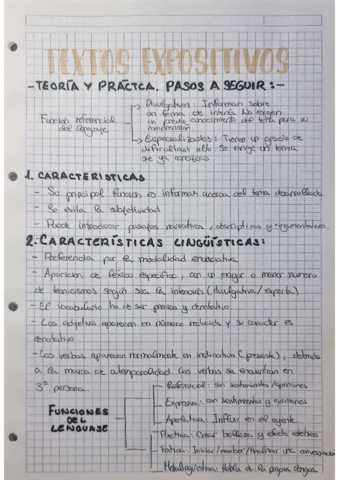 TEXTOS EXPOSITIVOS
-TEORÍA Y PRÁCTCA. PASOS A SEGUIR:-
Función referencial
del lenguaje
Divulgativos: Informan sobre
un tema de interés. No exigen
un previo conocimiento del tema para su
comprensión
Especializados: Tienen un grado de
dificultad alto. Se exige un tema
que ya conozcas
1. CARACTERISTICAS
- Su principal función es informar acerca del tema desarrollado.
- Se evita la subjetividad
- Puede introducir pasajes narrativos, descriptivos y argumentativos.
2. CARACTERÍSTICAS LINGÜÍSTICAS:
- Preferencia por la modalidad enunciativa
- Aparición de léxico específico, con un mayor o menor número
de tecnicismos según sea la intención (divulgativa/experta).
- El vocabulario ha de ser preciso y denotativo.
- Los adjetivos aparecen en número reducido y su carácter es
denotativo
- Los verbos aparecen normalmente en indicativo (presente), debido
a la marca de atemporalidad. Los verbos se encuentran en
3ª persona.
FUNCIONES
DEL
LENGUAJE
Referencial: Sin sentimientos/opiniones
Expresiva: con sentimientos y opiniones
Apelativa: Influir en el oyente.
Poética: Crear belleza y efecto estético
Fática: Iniciar/ /finalizar una
Metalingüística: Habla de la propia lengua